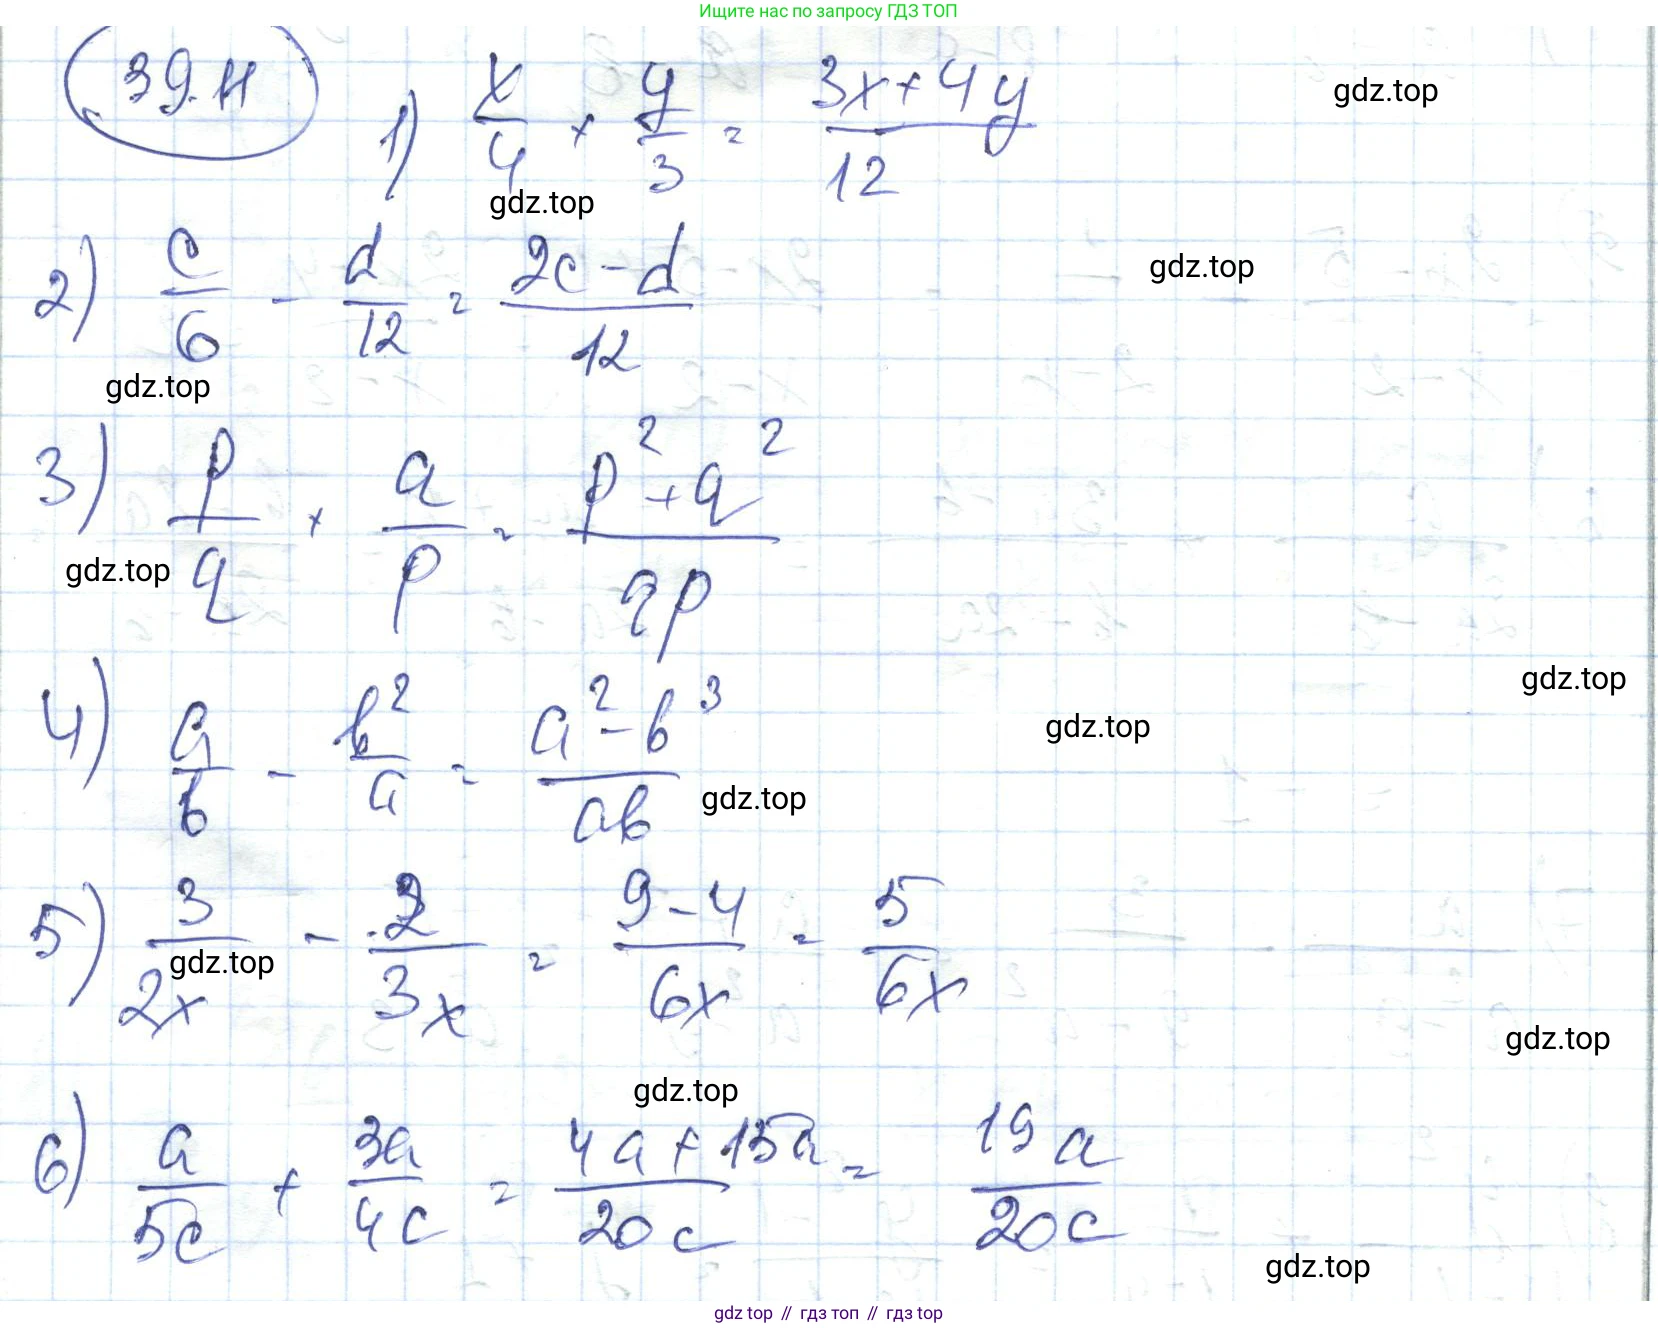 Ищите нас по запросу ГДЗ ТОП
39.Н
1) x/4 + y/3 = (3x+4y)/12
gdz.top
gdz.top
2) c/6 - d/12 = (2c-d)/12
gdz.top
gdz.top
3) p/q + q/p = (p²+q²)/qp
gdz.top
gdz.top
4) a/b - b²/a = (a²-b³)/ab
gdz.top
gdz.top
5) 3/2x - 2/3x = (9-4)/6x = 5/6x
gdz.top
gdz.top
gdz.top
6) a/5c + 3a/4c = (4a+15a)/20c = 19a/20c
gdz.top
gdz top // гдз топ // гдз top